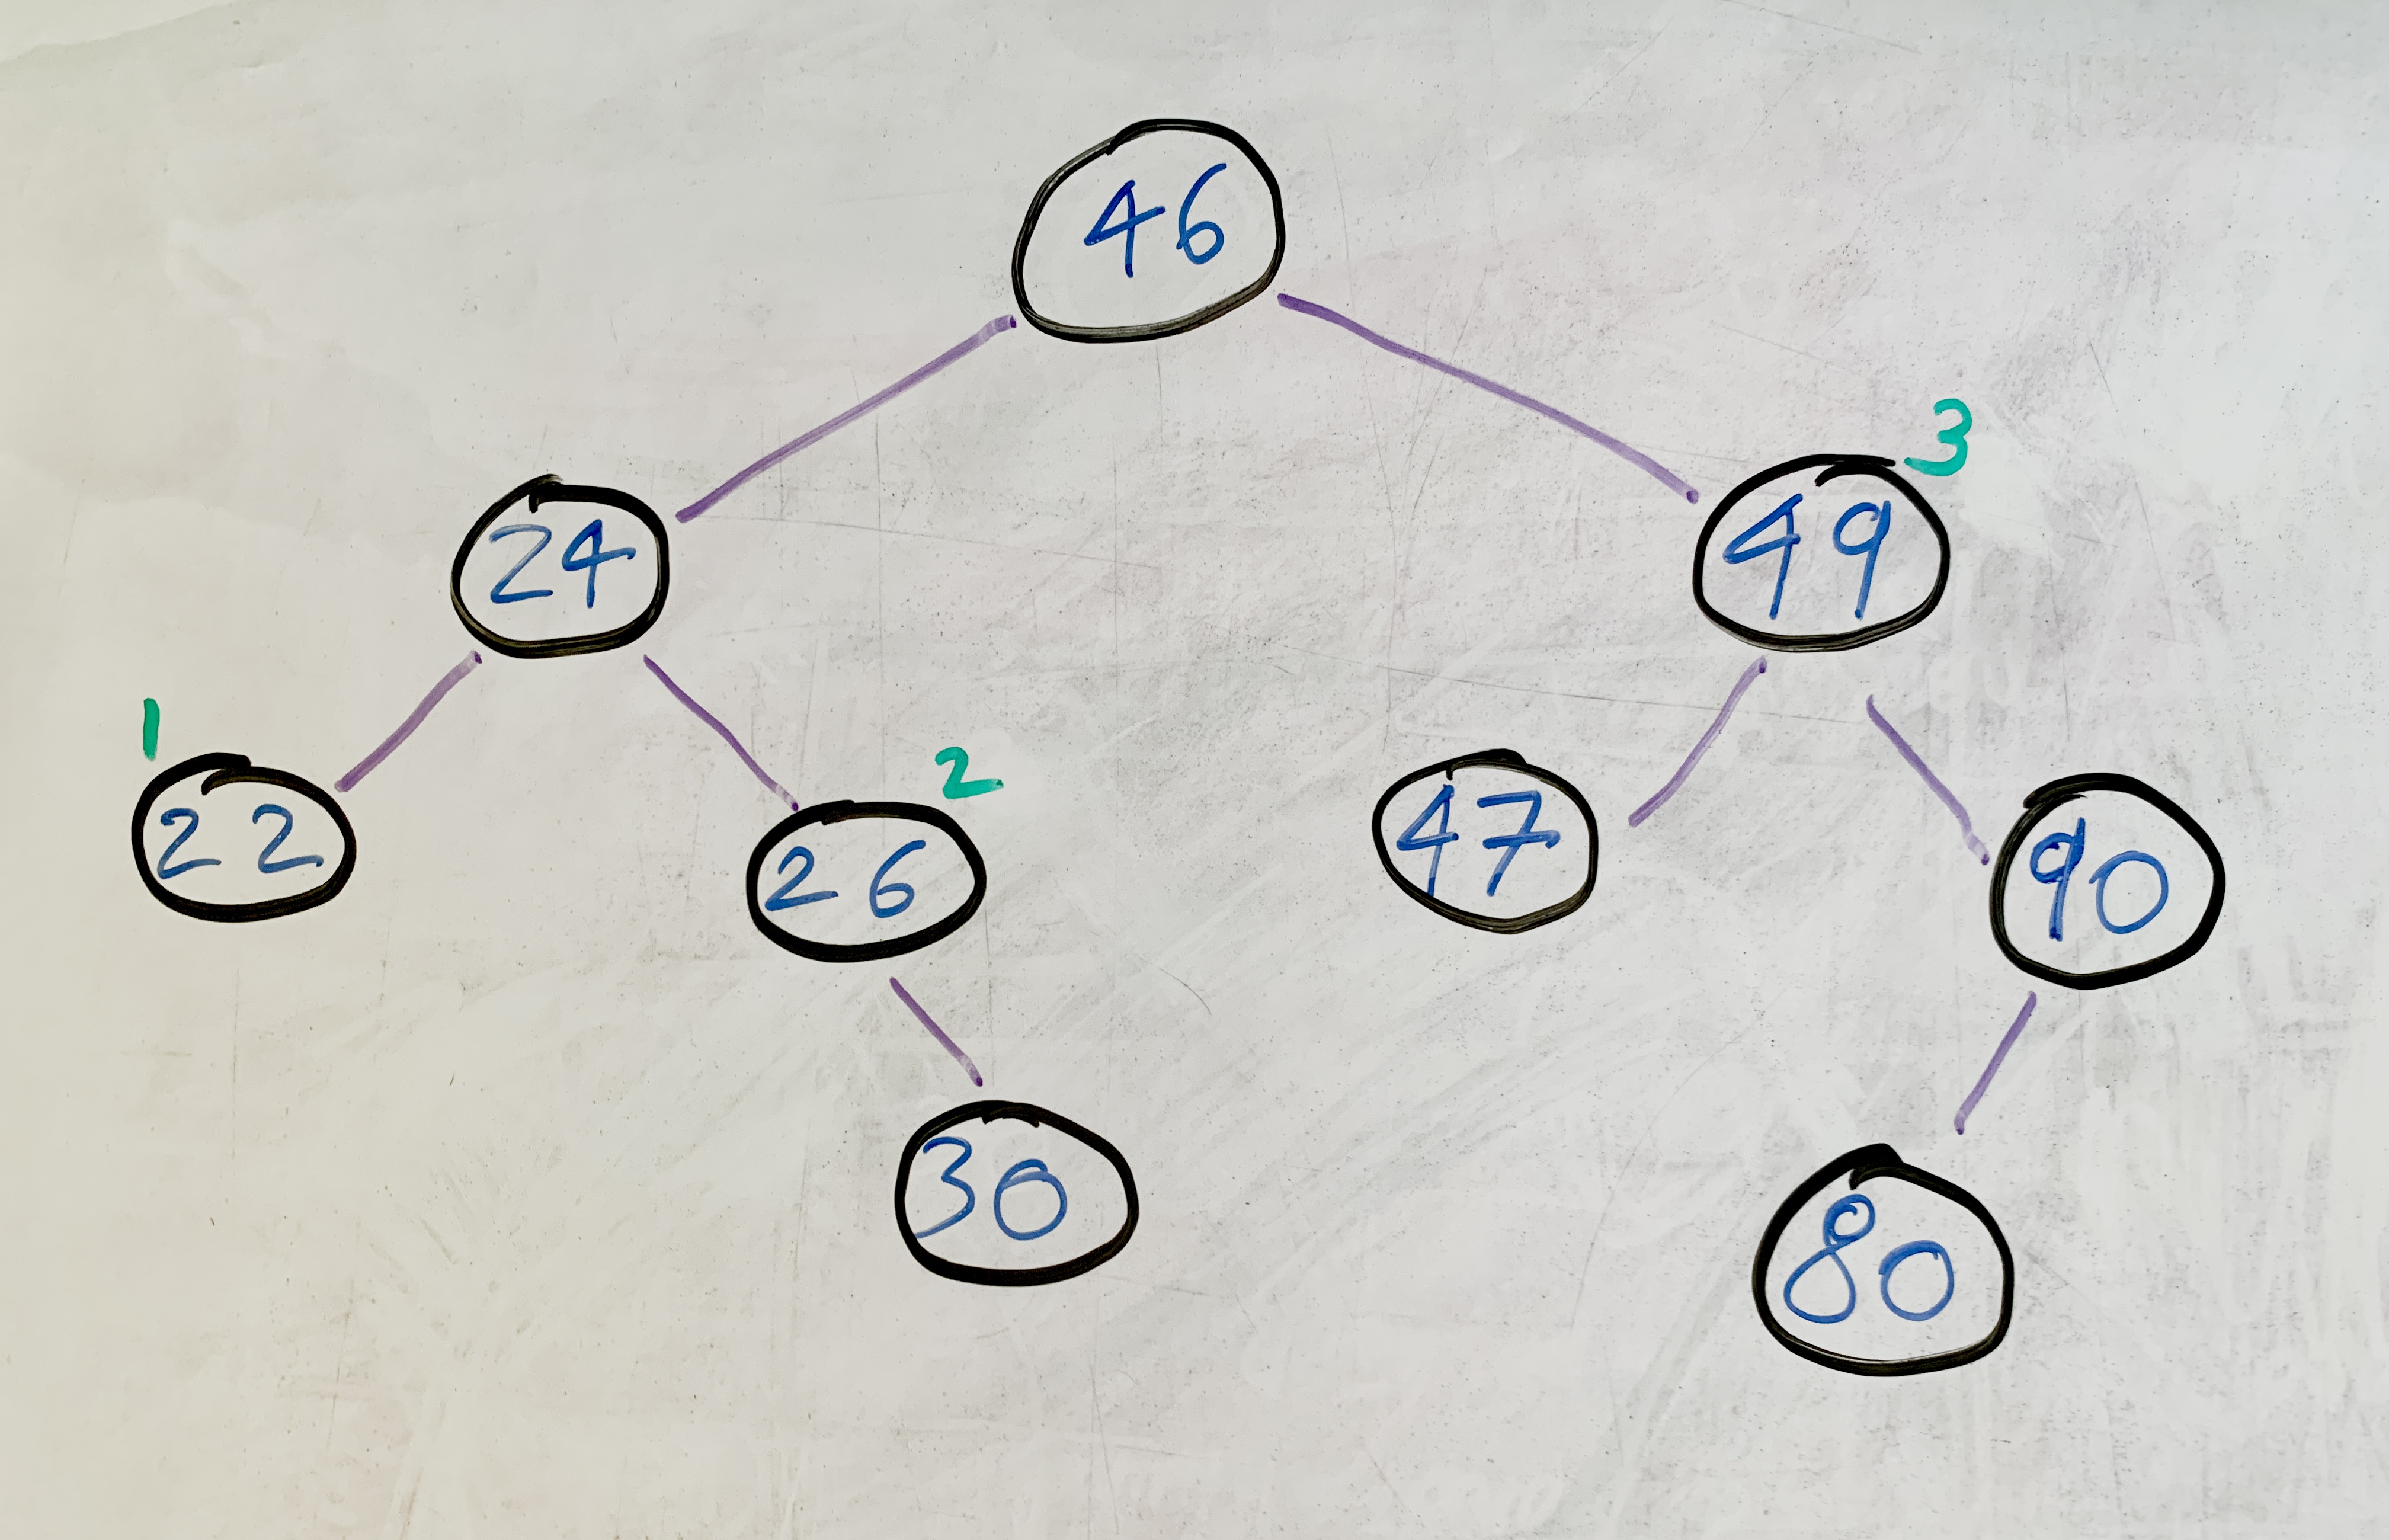 46
3
24 49
1 2
22 26 47 90
30 80